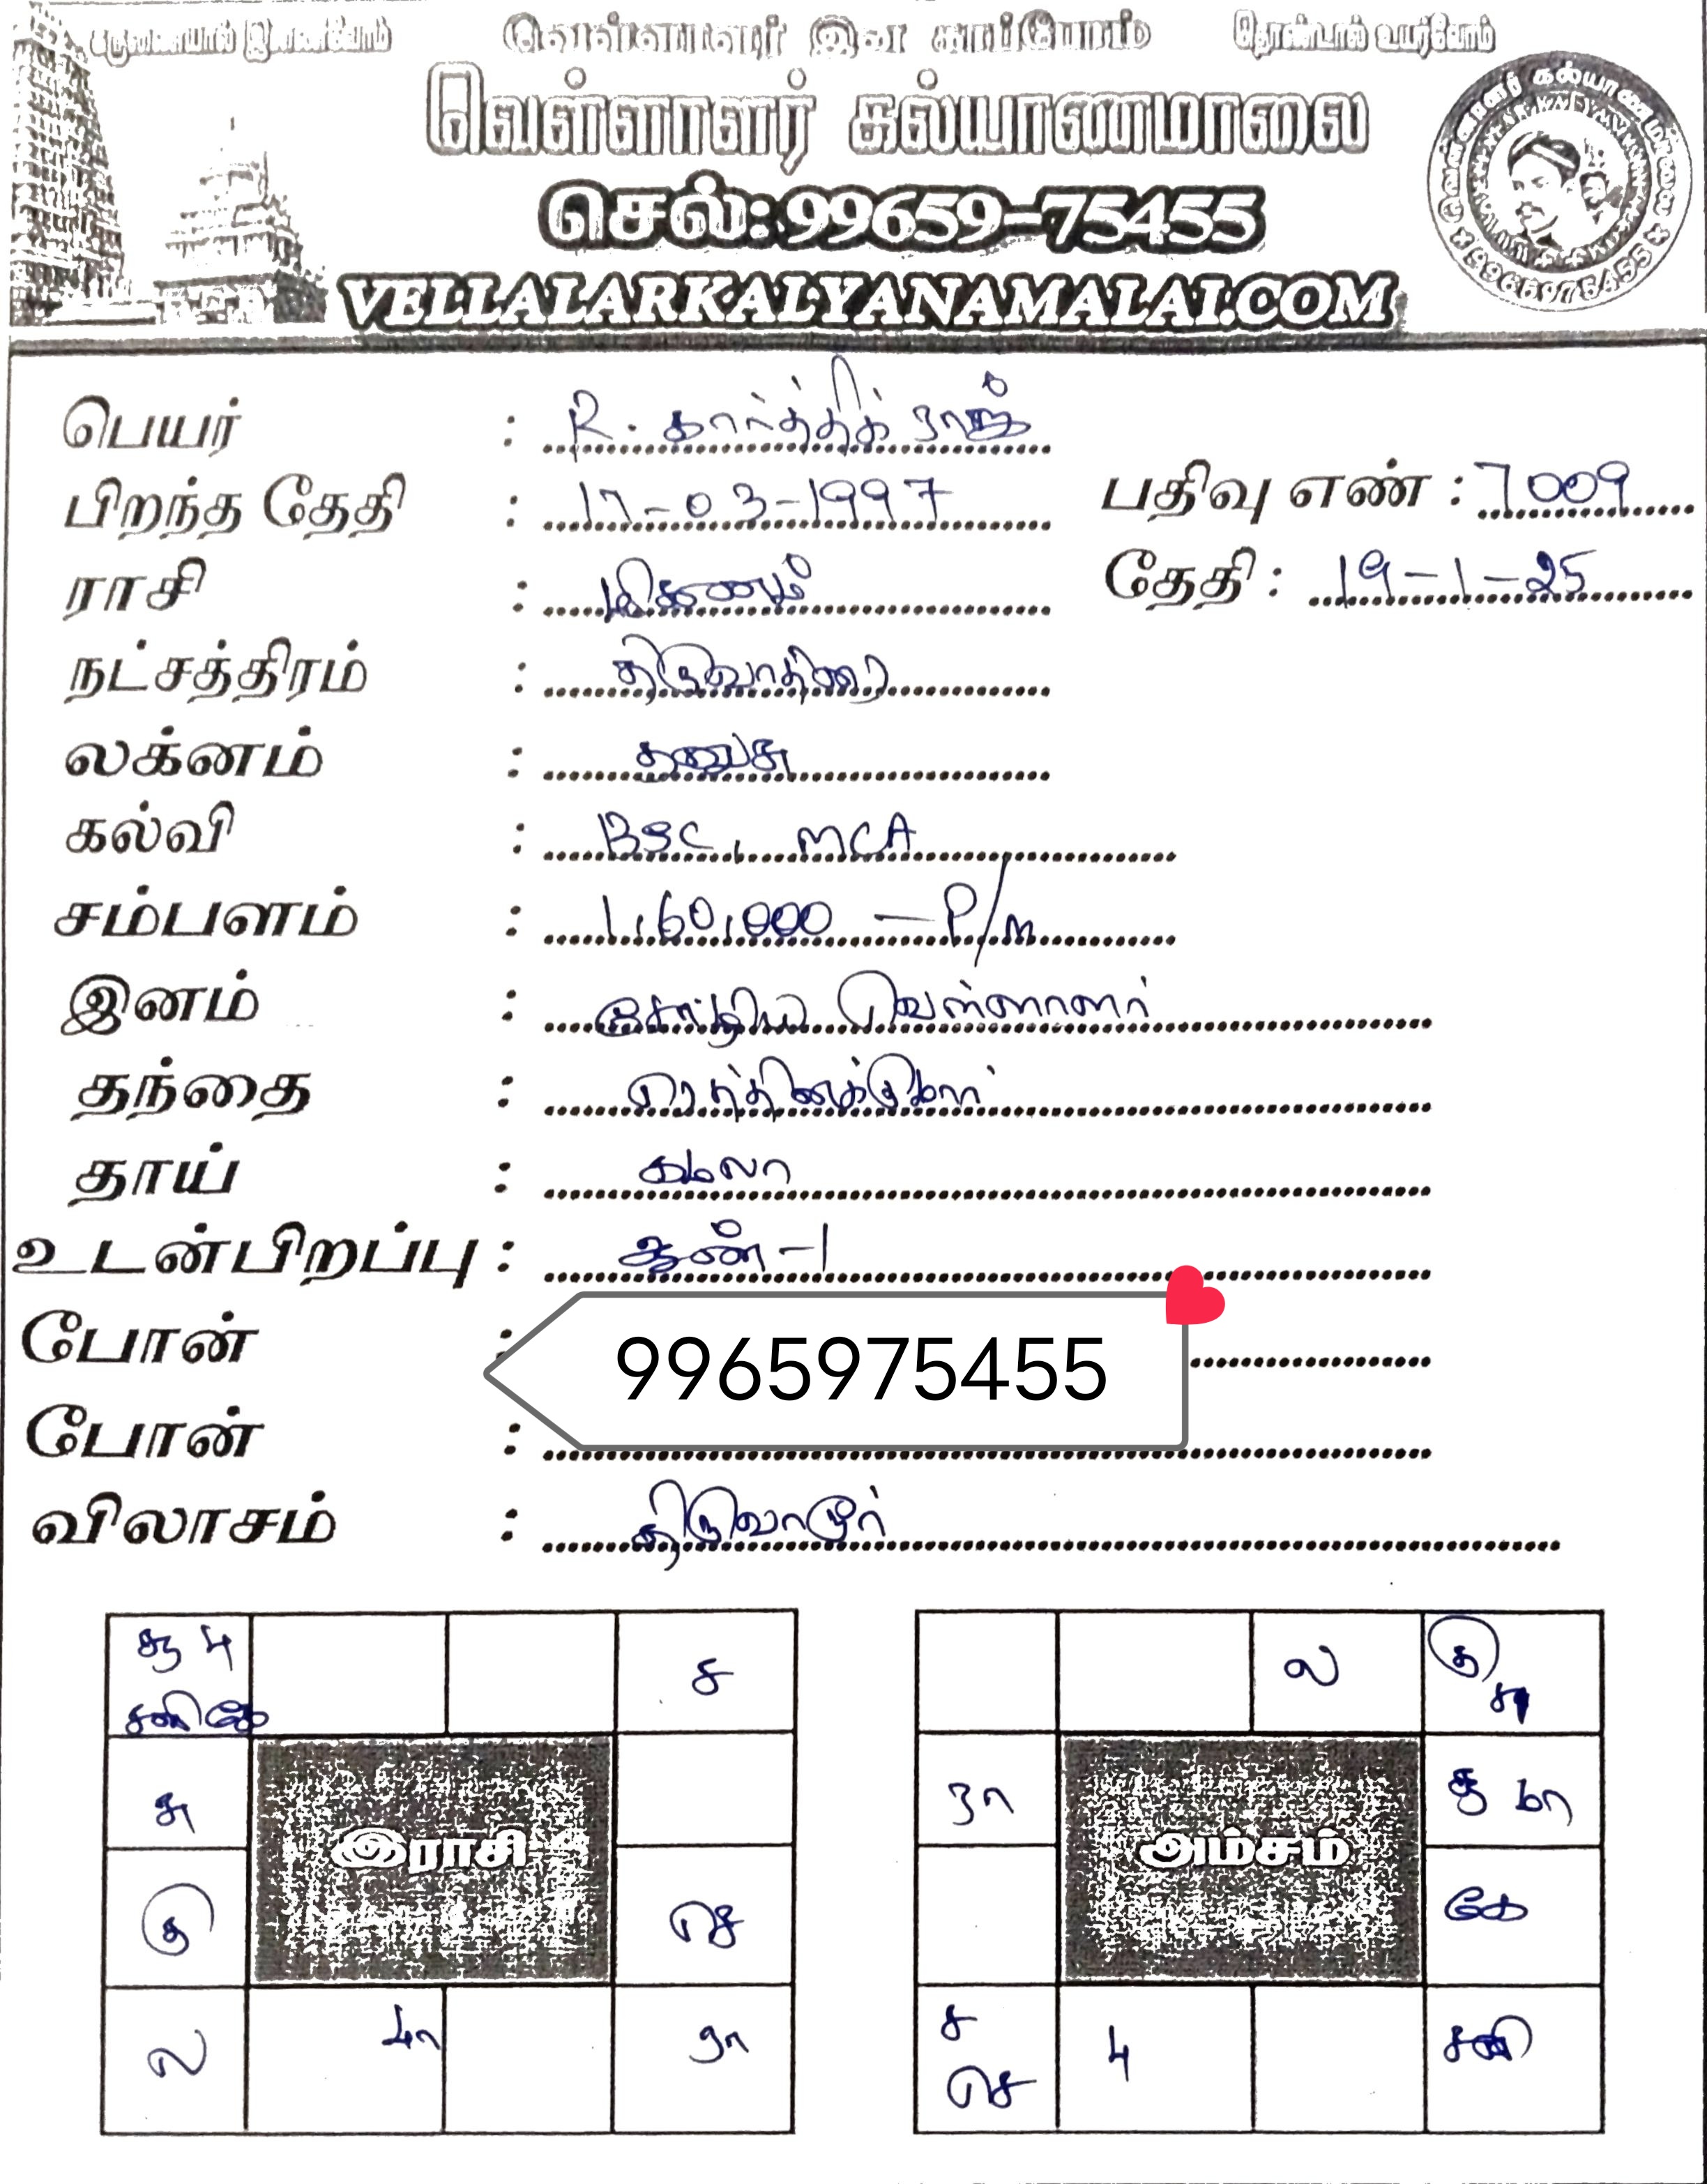 கருணையால் இணைவோம்
வெள்ளாளர் இன காப்போம்
தொண்டால் உயர்வோம்
வெள்ளாளர் கல்யாணமாலை
செல்: 99659-75455
VELLALARKALYANAMALAI.COM
வெள்ளாளர் கல்யாணமாலை
9965975455
பெயர் : R. கார்த்திக் ராஜ்
பிறந்த தேதி : 17-03-1997 பதிவு எண் : 7009
ராசி : மிதுனம் தேதி : 19-1-25
நட்சத்திரம் : திருவாதிரை
லக்னம் : தனுசு
கல்வி : BSC, MCA
சம்பளம் : 1,60,000 - P/m
இனம் : சோழிய வெள்ளாளர்
தந்தை : ரெத்தினக்குமார்
தாய் : கமலா
உடன்பிறப்பு : ஆண்-1
போன் : 9965975455
போன் :
விலாசம் : திருவாரூர்
சூ பு ச
சனி கே
சு
இராசி
கு செ
ல மா ரா
ல கு
சூ
ரா சு மா
அம்சம்
கே
ச பு சனி
செ